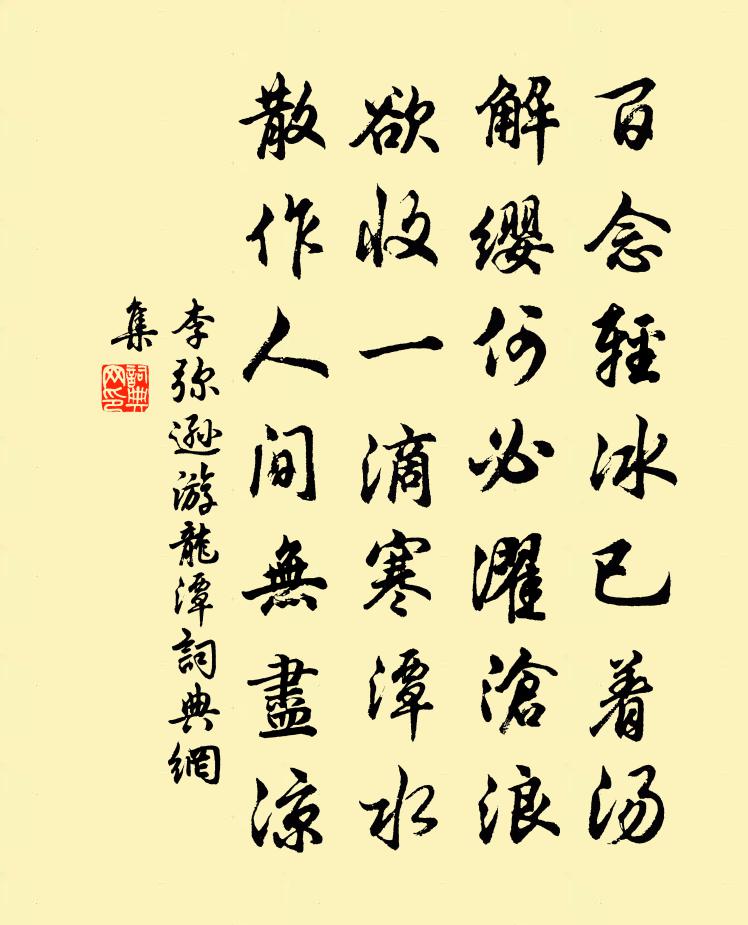 百念輕冰已着湯
解纓何必濯滄浪
欲收一滴寒潭水
散作人间無盡凉
李弥遜游龍潭詞典網
集
詞典网印